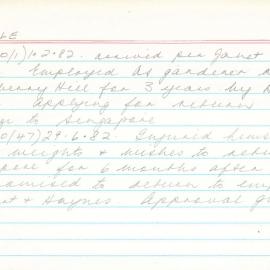 LE
0/1) 10.2.82. arrived per Janet
Employed as gardener
Hill for 3 years by
applying for return
to Singapore
0(47) 29.6.82. Injured
weights & wishes to
for 6 months after
promised to return to
& Haynes Approval